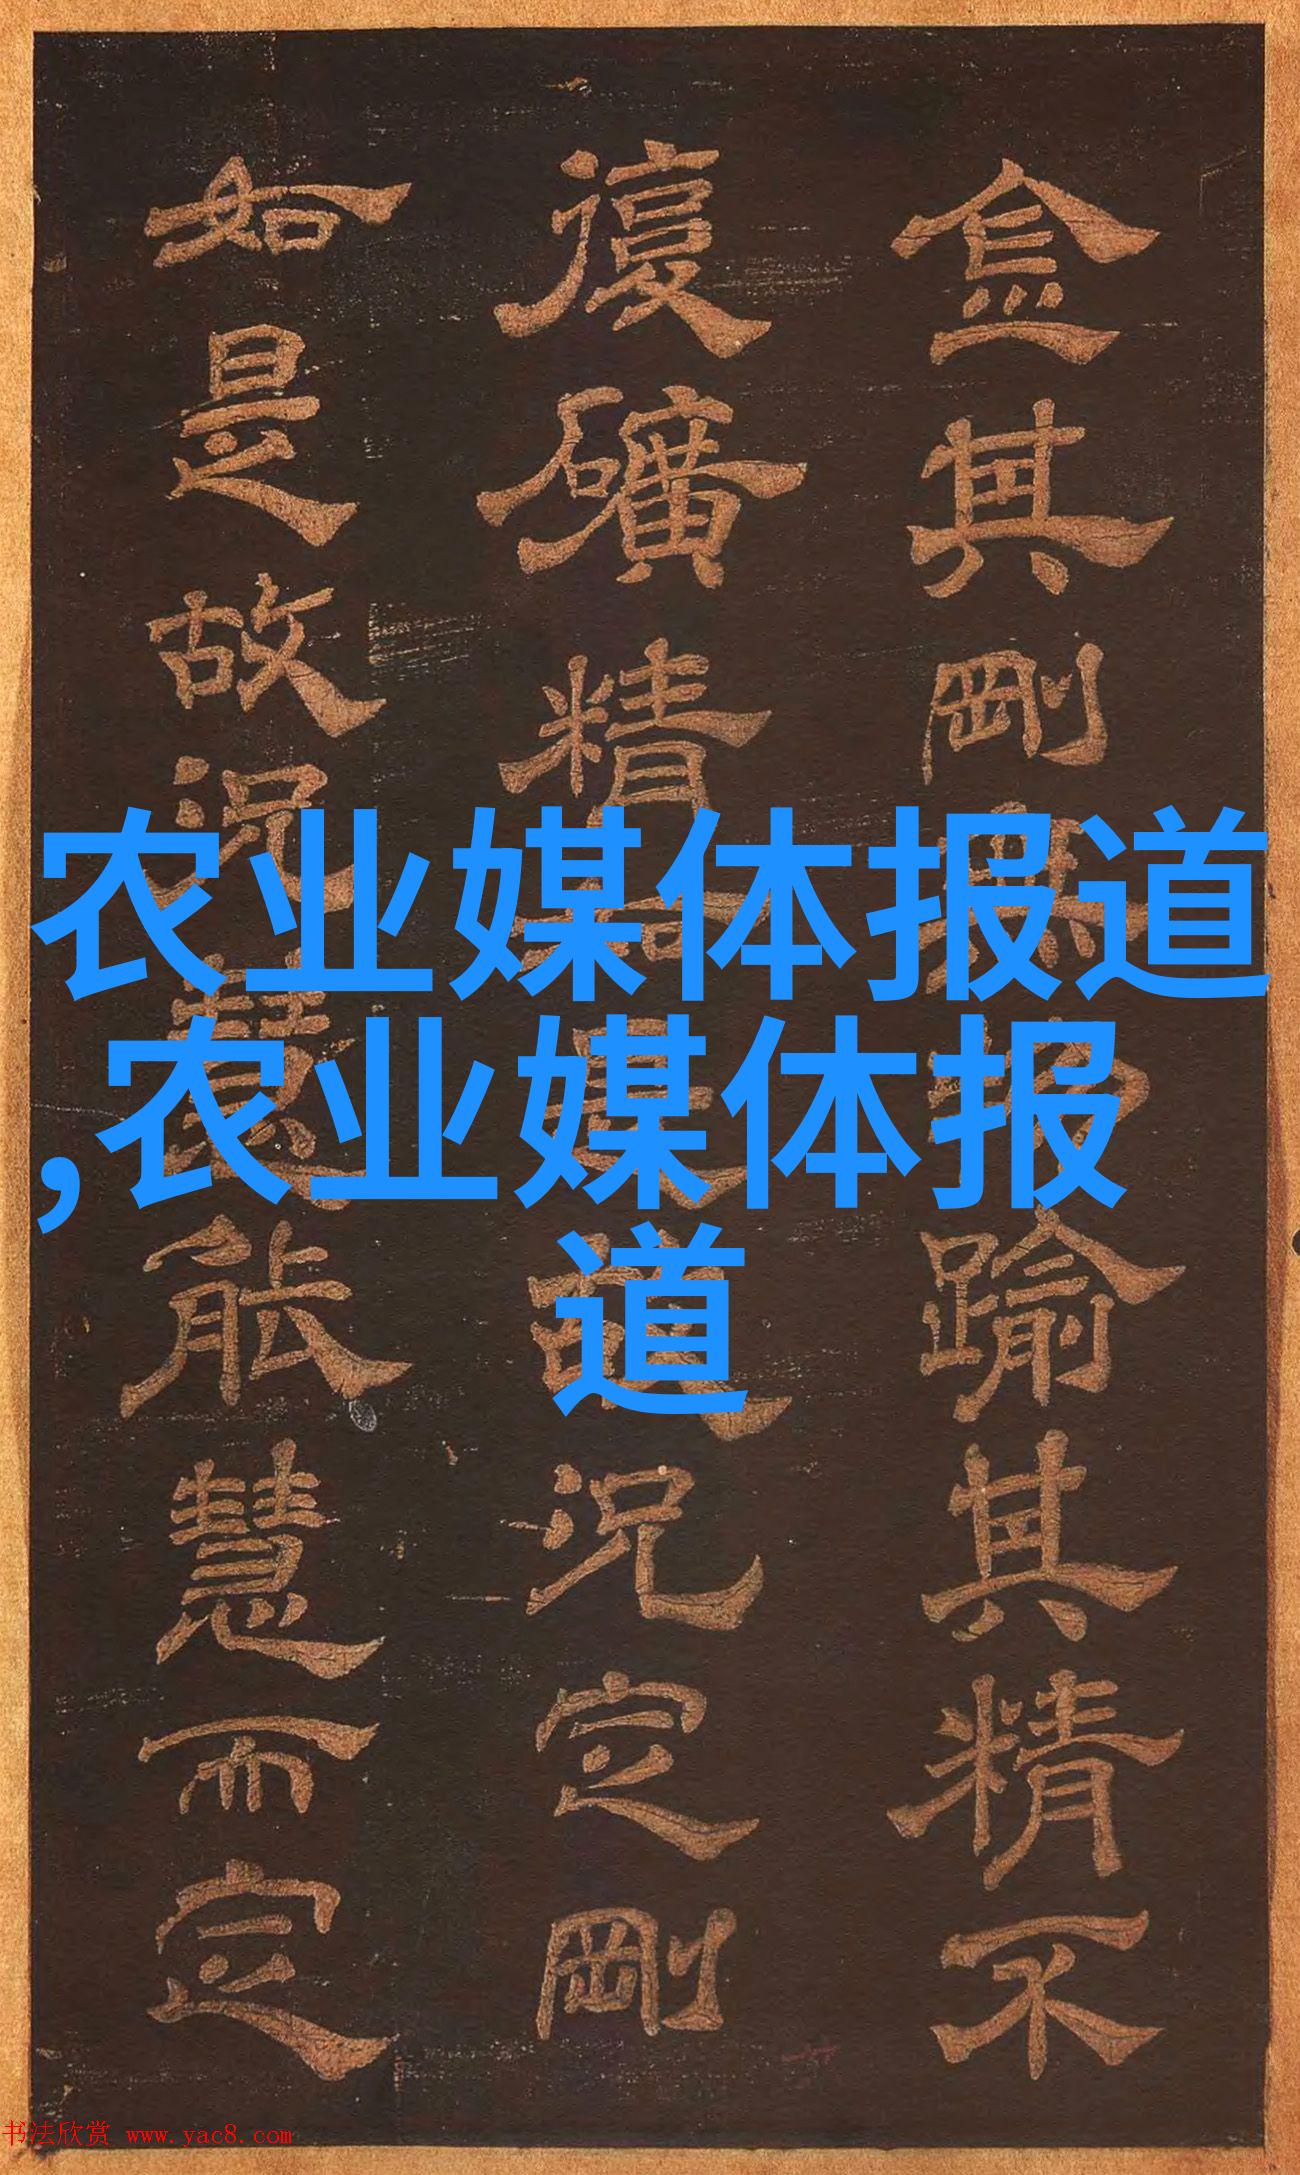 金其剛踰其精不
復礦精故況定剛
如是故況慧能慧而定
农业媒体报道
,农业媒体报
道
书法欣赏 www.yac8.com